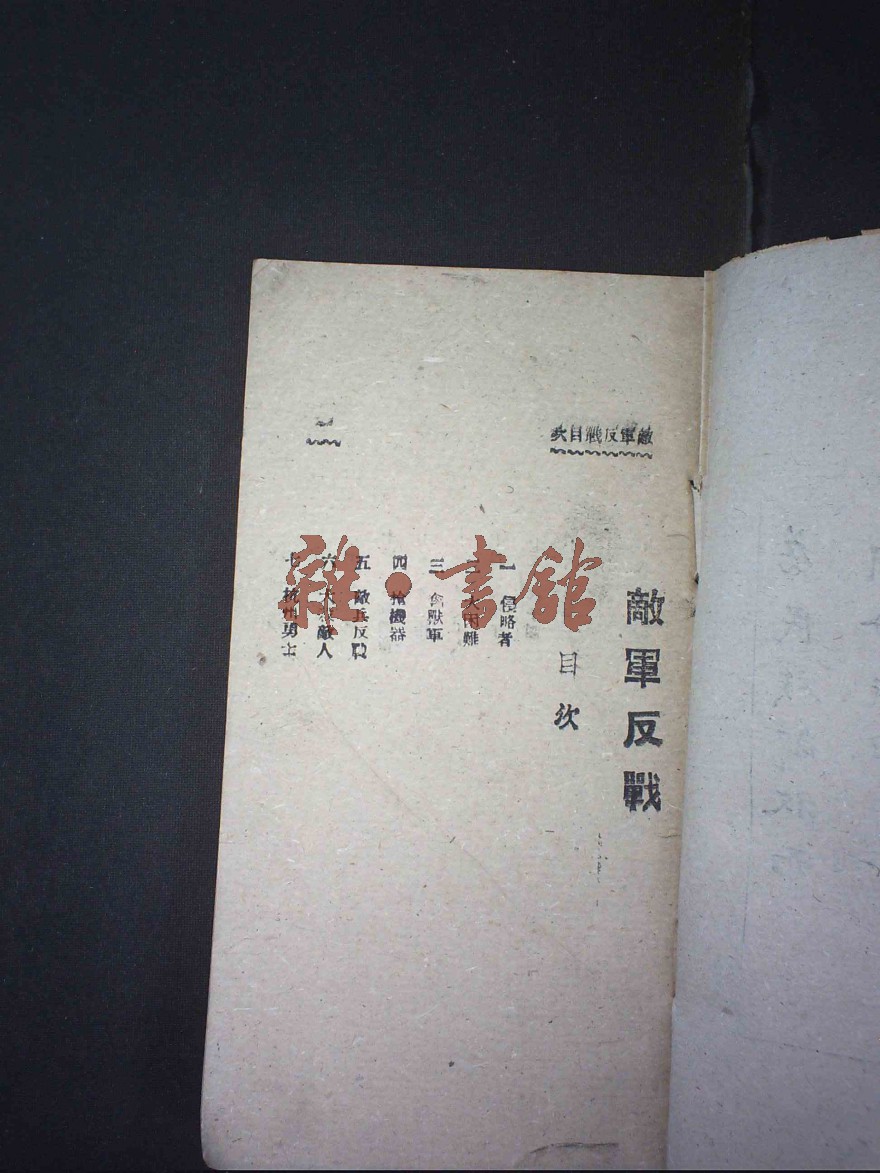 敵軍反戰目次
二
敵軍反戰
目次
一 侵略者
二 大困難
三 禽獸軍
四 搶機器
五 敵兵反戰
六 敵人
七 杭州勇士
雜·書館